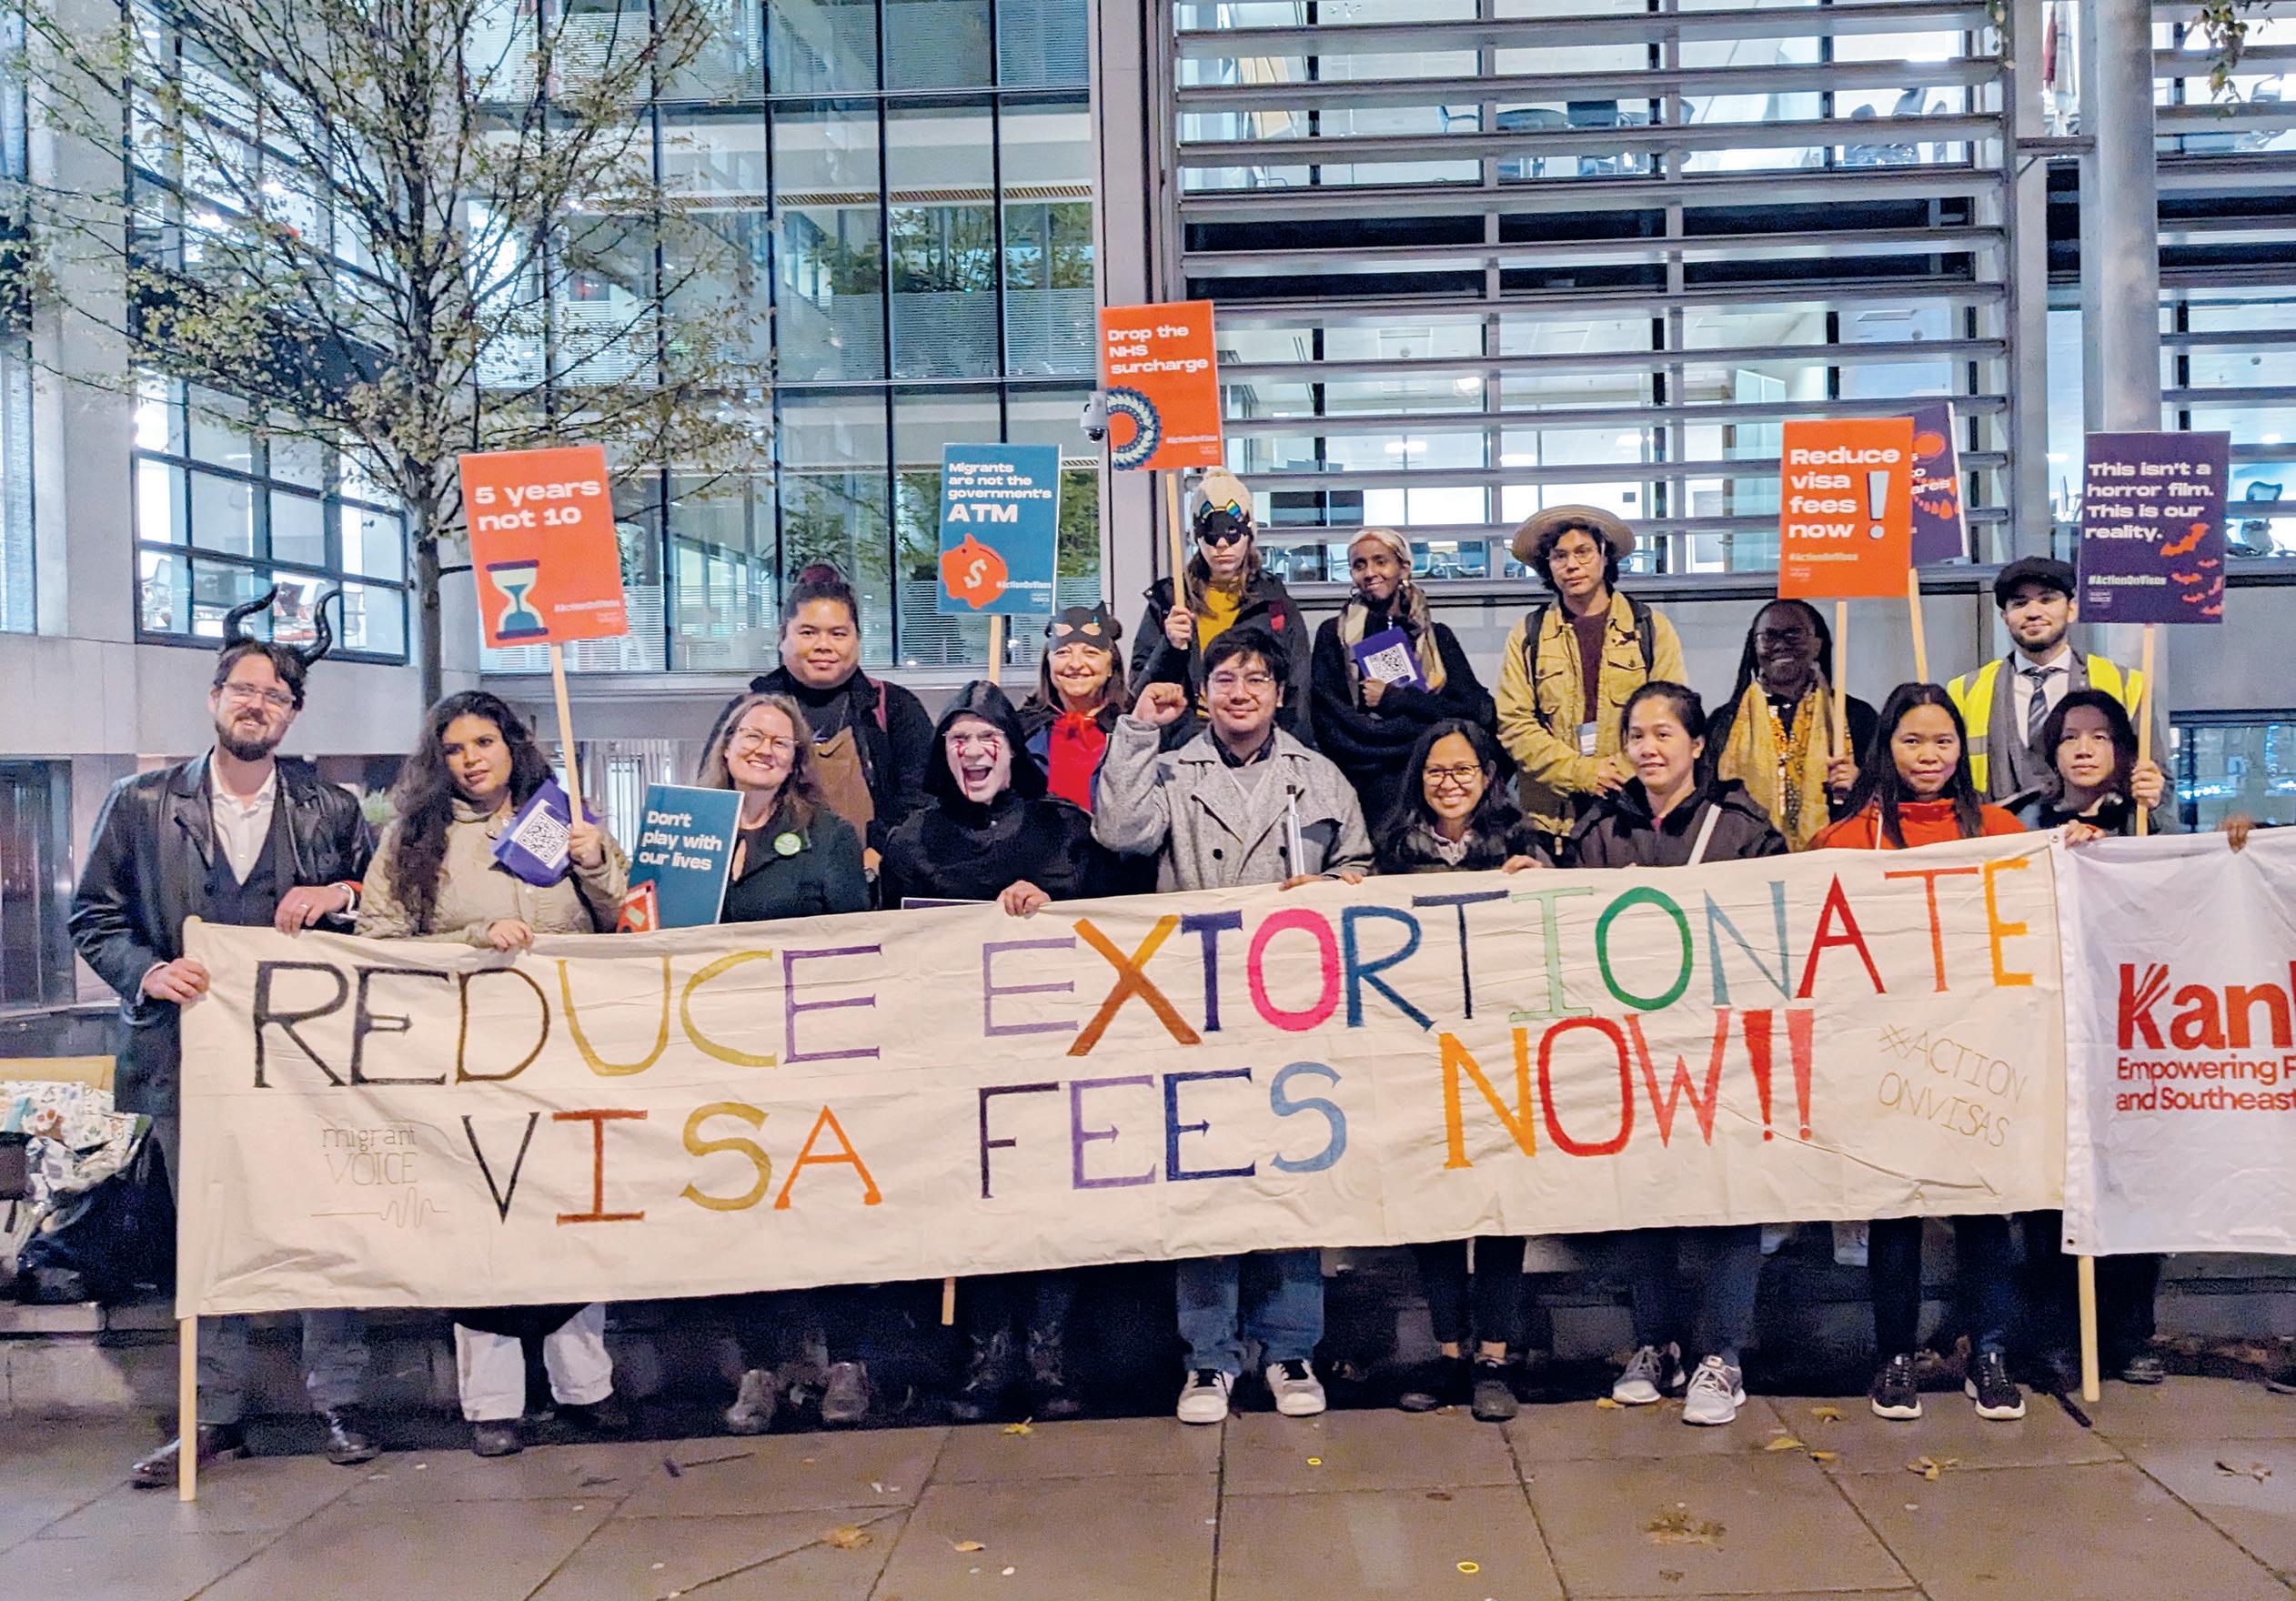 Drop the
NHS
surcharge
#ActionOnVisas
5 years
not 10
#ActionOnVisas
Migrants
are not the
government's
ATM
$
#ActionOnVisas
Reduce
visa
fees
now!
#ActionOnVisas
This isn't a
horror film.
This is our
reality.
#ActionOnVisas
Don't
play with
our lives
REDUCE EXTORTIONATE
VISA FEES NOW!!
migrant
VOICE
#ACTION
ONVISAS
Kan
Empowering F
and Southeast